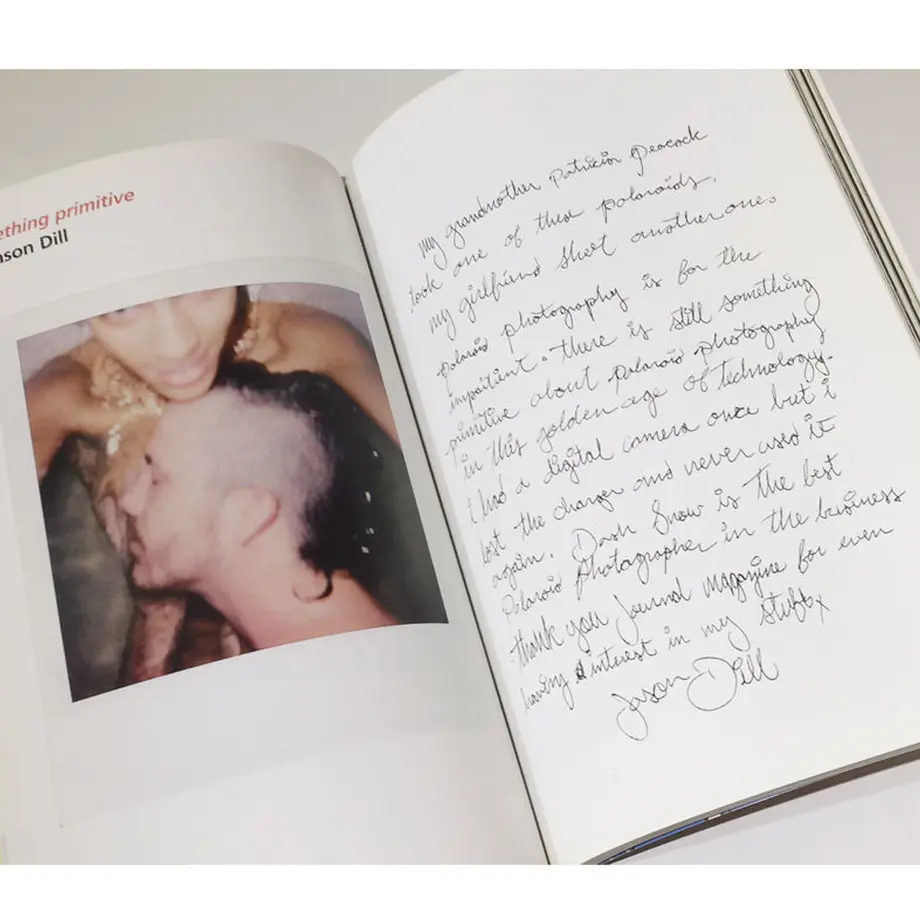 ething primitive
ason Dill
my grandmother patricia peacock
took one of these polaroids.
my girlfriend shot another one.
polaroid photography is for the
impaitient. there is still something
primitive about polaroid photography
in this golden age of technology.
i had a digital camera once but i
lost the charger and never used it
again. Dash Snow is the best
polaroid photographer in the business
thank you Journal magazine for even
having interest in my stuff x
Jason Dill